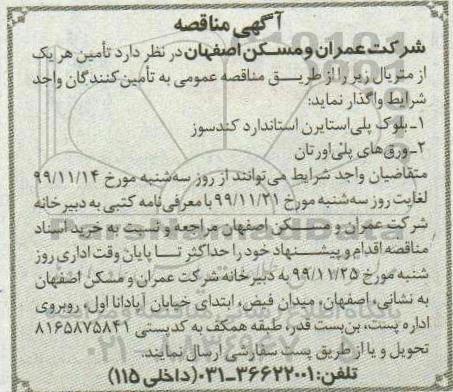 آگهی مناقصه
شرکت عمران و مسکن اصفهان در نظر دارد تأمین هر یک
از متریال زیر را از طریق مناقصه عمومی به تأمین کنندگان واجد
شرایط واگذار نماید:
۱ـ بلوک پلی استایرن استاندارد کندسوز
۲ـ ورق‌های پلی اورتان
متقاضیان واجد شرایط می‌توانند از روز سه‌شنبه مورخ ۹۹/۱۱/۱۴
لغایت روز سه‌شنبه مورخ ۹۹/۱۱/۲۱ با معرفی‌نامه کتبی به دبیرخانه
شرکت عمران و مسکن اصفهان مراجعه و نسبت به خرید اسناد
مناقصه اقدام و پیشنهاد خود را حداکثر تا پایان وقت اداری روز
شنبه مورخ ۹۹/۱۱/۲۵ به دبیرخانه شرکت عمران و مسکن اصفهان
به نشانی، اصفهان، میدان فیض، ابتدای خیابان آپادانا اول، روبروی
اداره پست، بن‌بست قدر، طبقه همکف به کدپستی ۸۱۶۵۸۷۵۸۴۱
تحویل و یا از طریق پست سفارشی ارسال نمایند.
تلفن: ۳۶۶۲۲۰۰۱-۰۳۱ (داخلی ۱۱۵)